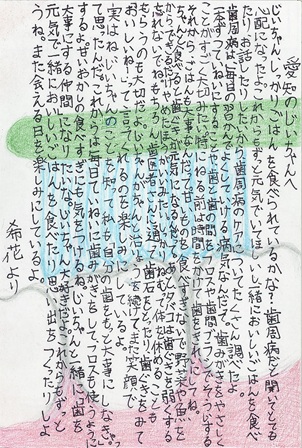 愛知のじいちゃんへ
じいちゃんしっかりごはんを食べられているかな？歯周病だと聞いてとても
心配になったよ。これからもずっと元気でいてほしいし一緒においしいごはんを食べ
たりお話したりしたいから歯周病のことについてたくさん調べたよ。
歯周病は、毎日の習かんでよくしていける病気なんだって。歯みがきをやさしく
一本ずつていねいにすることや歯と歯の間もきれいに
ことがすごく大切みたい。特にねる前は時間をかけて歯をきれいにしてね。
それから、ごはんも大事なんだ。甘いものを食べすぎないで野菜や魚を
よくかんで食べると歯ぐきが元気になるんだって。タバコは歯ぐきを弱くする
忘れないでね。
もらうのも大切だよ。
おいしいね！って言ってくれるのを楽しみにしているよ。
実はね、じいちゃんのことを知って私も自分の歯をもっと大事にしなきゃ
て思ったんだ。これからは毎日ていねいに歯みがきをしてフロスも使うように
するよ。甘いおかしの食べすぎにも気をつけるね。じいちゃんと一緒に歯を
大事にする仲間になりたいな。じいちゃん大好きだよ。これからもずっと
元気で一緒においしいごはんを食べたり、思い出をつくったりしよ
うね。また会える日を楽しみにしているよ。
希花より